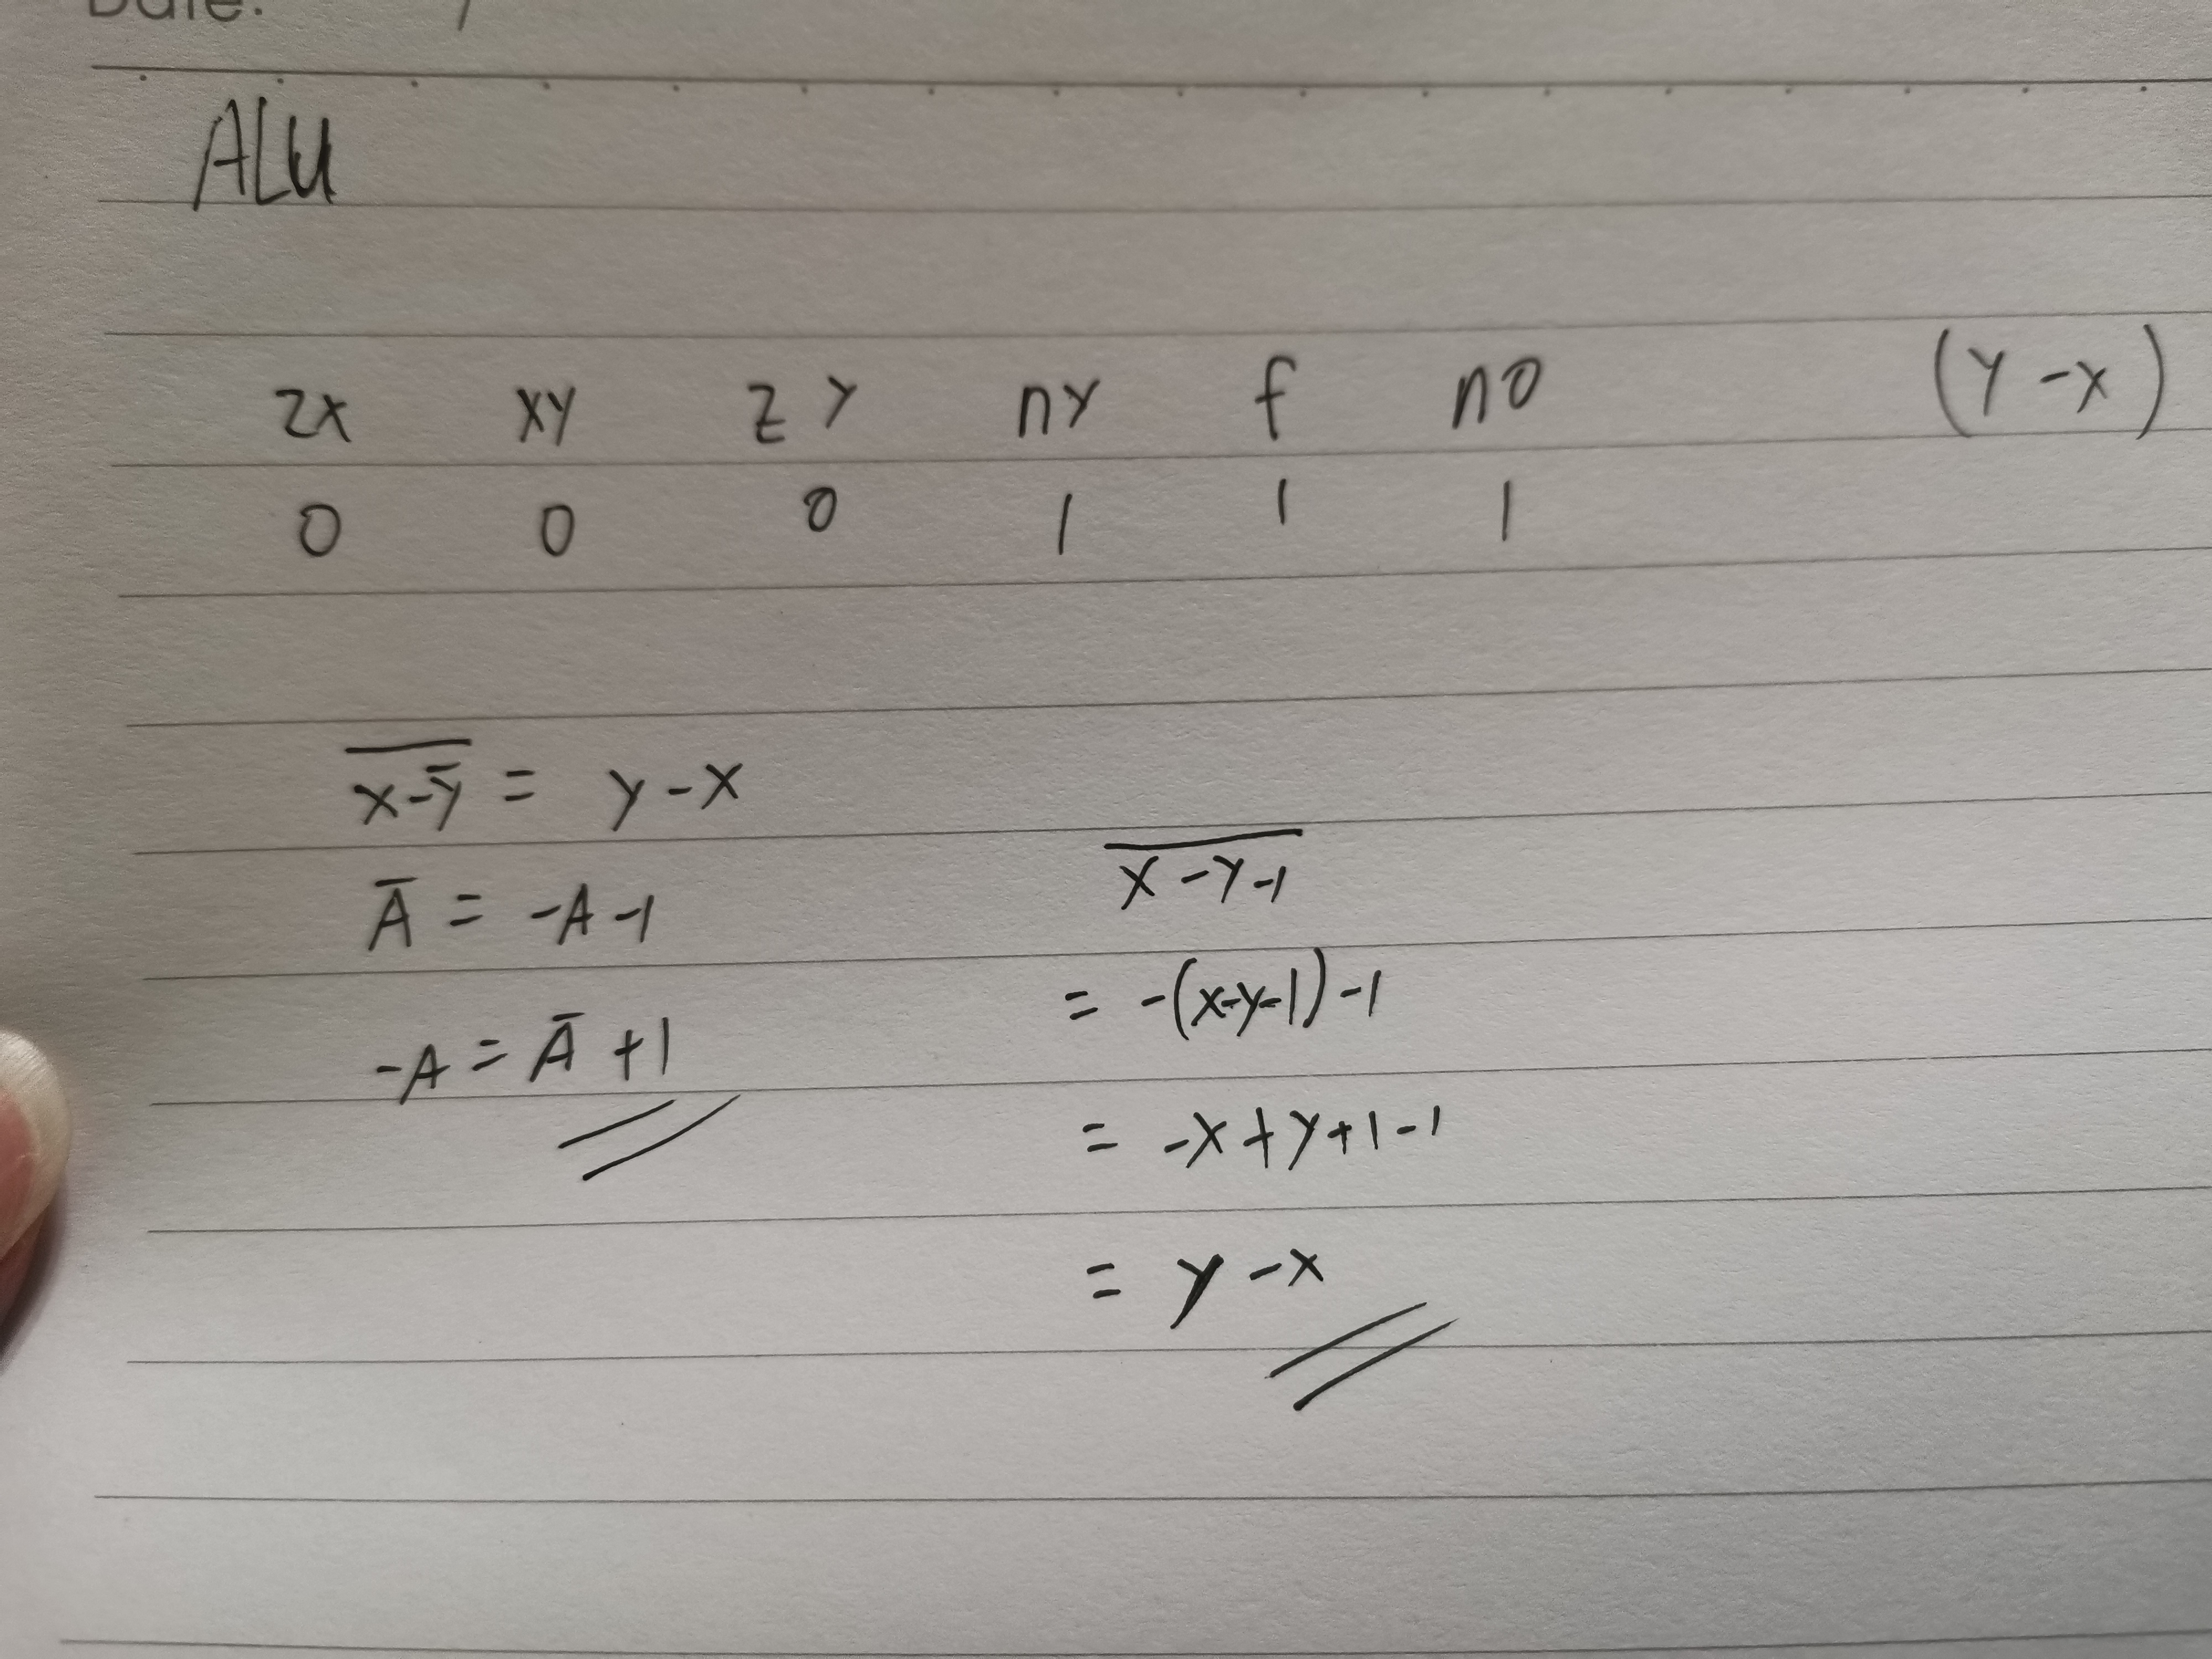 Date: /
ALU
zx xy zy ny f no (y-x)
0 0 0 1 1 1
\overline{x-\bar{y}} = y-x
Ā = -A-1
-A = Ā+1
\overline{x-y-1}
= -(x-y-1)-1
= -x+y+1-1
= y-x